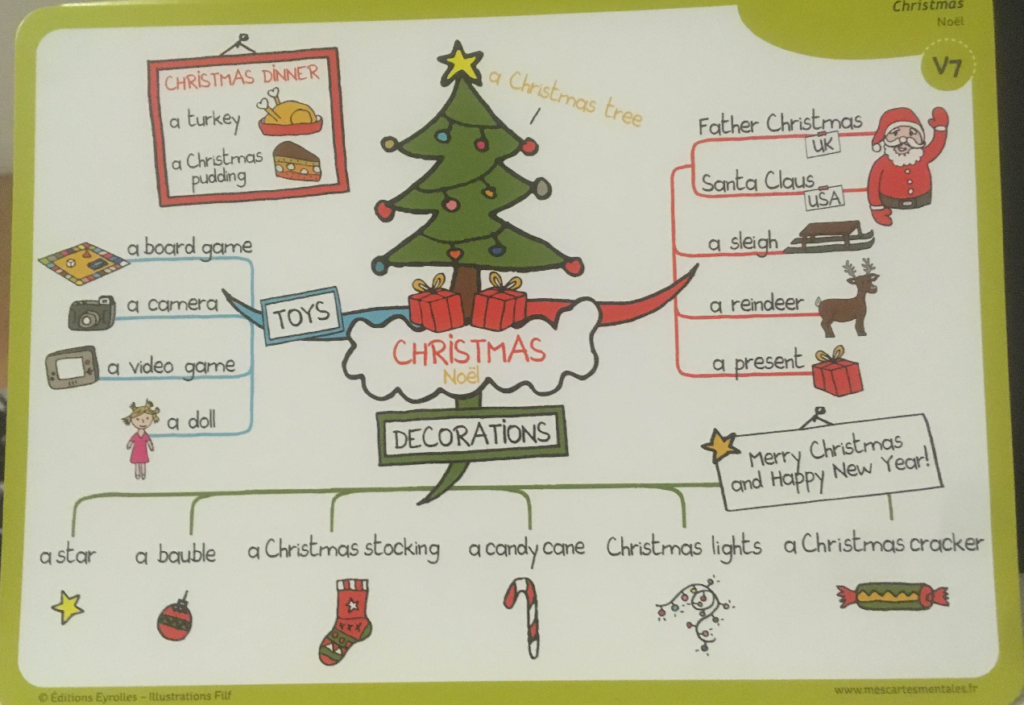 Christmas
Noël
V7
CHRISTMAS DINNER
a turkey
a Christmas
pudding
a Christmas tree
Father Christmas
UK
Santa Claus
USA
a sleigh
a reindeer
a present
a board game
a camera
a video game
a doll
TOYS
CHRISTMAS
Noël
DECORATIONS
Merry Christmas
and Happy New Year!
a star
a bauble
a Christmas stocking
a candy cane
Christmas lights
a Christmas cracker
© Éditions Eyrolles – Illustrations Filf
www.mescartesmentales.fr